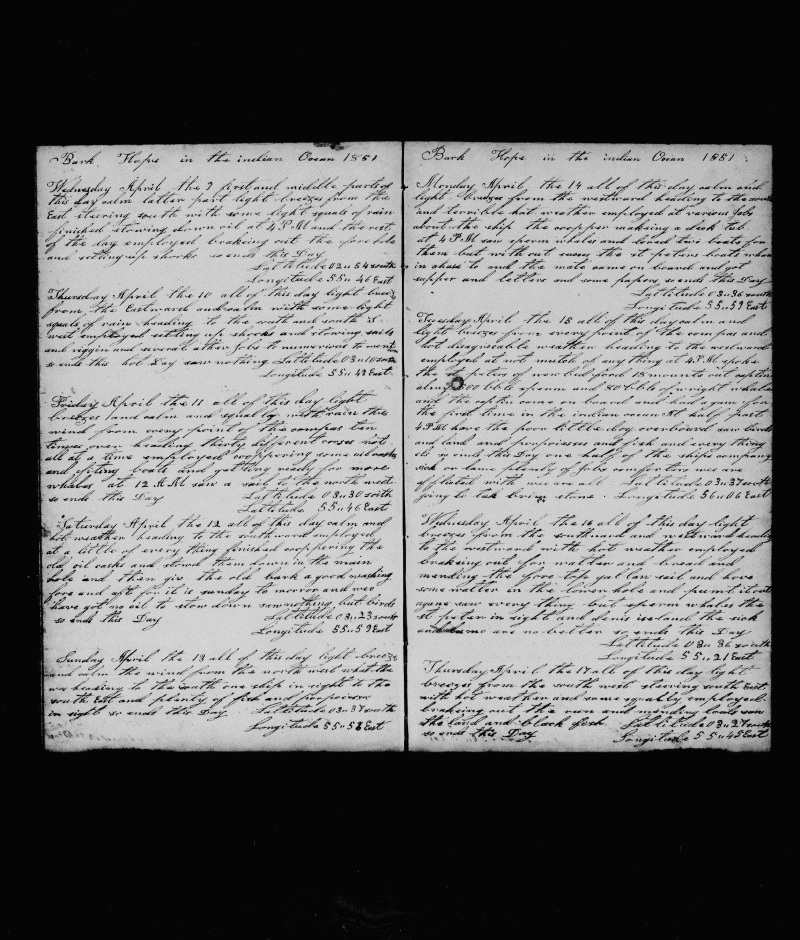 Bark Hope in the indian Ocean 1851
Wednesday April the 9 first and middle parts of
this day calm latter part light breezes from the
East steering south with some light squals of rain
finished stowing down oil at 4 PM and the rest
of the day employed brakeing out the fore hole
and setting up shooks so ends this Day
Lattitude 02 u 54 south
Longitude 55 u 46 East
Thursday April the 10 all of this day light breezs
from the Eastward and calm with some light
squals of rain heading to the south and south
west employed setting up shooks and stowing sails
and riggin and several other Jobs to numerious to
so ends this hot Day saw nothing Lattitude 03 u 10 south
Longitude 55 u 49 East
Friday April the 11 all of this day light
breezes and calm and squally with rain the
wind from every point of the compas ten
times over heading thirty different corses not
all at a time employed coopering some oil casks
and fiting boats and getting ready for more
whales at 12 AM saw a sail to the north west
so ends this Day Lattitude 03 u 30 south
Lattitude 55 u 46 East
Saturday April the 12 all of this day calm and
hot weather heading to the southward employed
at a little of every thing finished coopering the
old oil casks and stowed them down in the main
hole and then giv the old bark a good washing
fore and aft for it is sunday to morror and wee
have got no oil to stow down saw nothing but birds
so ends this Day Lattitude 03 u 23 south
Longitude 55 u 59 East
Sunday April the 13 all of this day light breezs
and calm the wind from the north west what the
was heading to the south one ship in sight to the
south East and plenty of fish and porpoises
in sight so ends this Day Lattitude 03 u 37 south
Longitude 55 u 58 East
Bark Hope in the indian Ocean 1851
Monday April the 14 all of this day calm and
light breezes from the westward heading to the
and torrible hot weather employed at various Jobs
about the ship the coopper makeing a deck tub
at 4 PM saw sperm whales and lored two boats for
them but with out sucses the st peters boats whare
in chase to and the mate came on board and got
supper and letters and some papers so ends this Day
Lattitude 03 u 36 south
Longitude 55 u 59 East
Tuesday April the 15 all of this day calm and
light breezes from every point of the compas and
hot disagreable weather heading to the westward
employed at not mutch of any thing at 4 PM spoke
the st peters of new bedford 18 mounts out captin
almy 500 bbls sperm and 80 bbls of wright whale
and the captin came on board and had a gam for
the first time in the indian ocean At half past
4 PM hove the poor little dog overboard saw birds
and land and porpoisses and fish and every thing
els so ends this Day one half of the ships company
sick or lame plenty of jobs comforters wee are
afflicted with wee are all Lattitude 03 u 37 south
going to tak brim stone. Longitude 56 u 06 East
Wednesday April the 16 all of this day light
breezes from the southward and westward heading
to the westward with hot weather employed
brakeing out for watter and bread and
mending the fore top gallan sail and hove
some watter in the lower hole and pumt it out
agane saw every thing but sperm whales the
st peter in sight and denis iseland the sick
and lame are no better so ends this Day
Lattitude 03 u 36 south
Longitude 55 u 21 East
Thursday April the 17 all of this day light
breezes from the south west steering south East
with hot weather and some squals employed
brakeing out the run and mending boats saw
the land and black fish Lattitude 03 u 27 south
so ends this Day Longitude 55 u 45 East